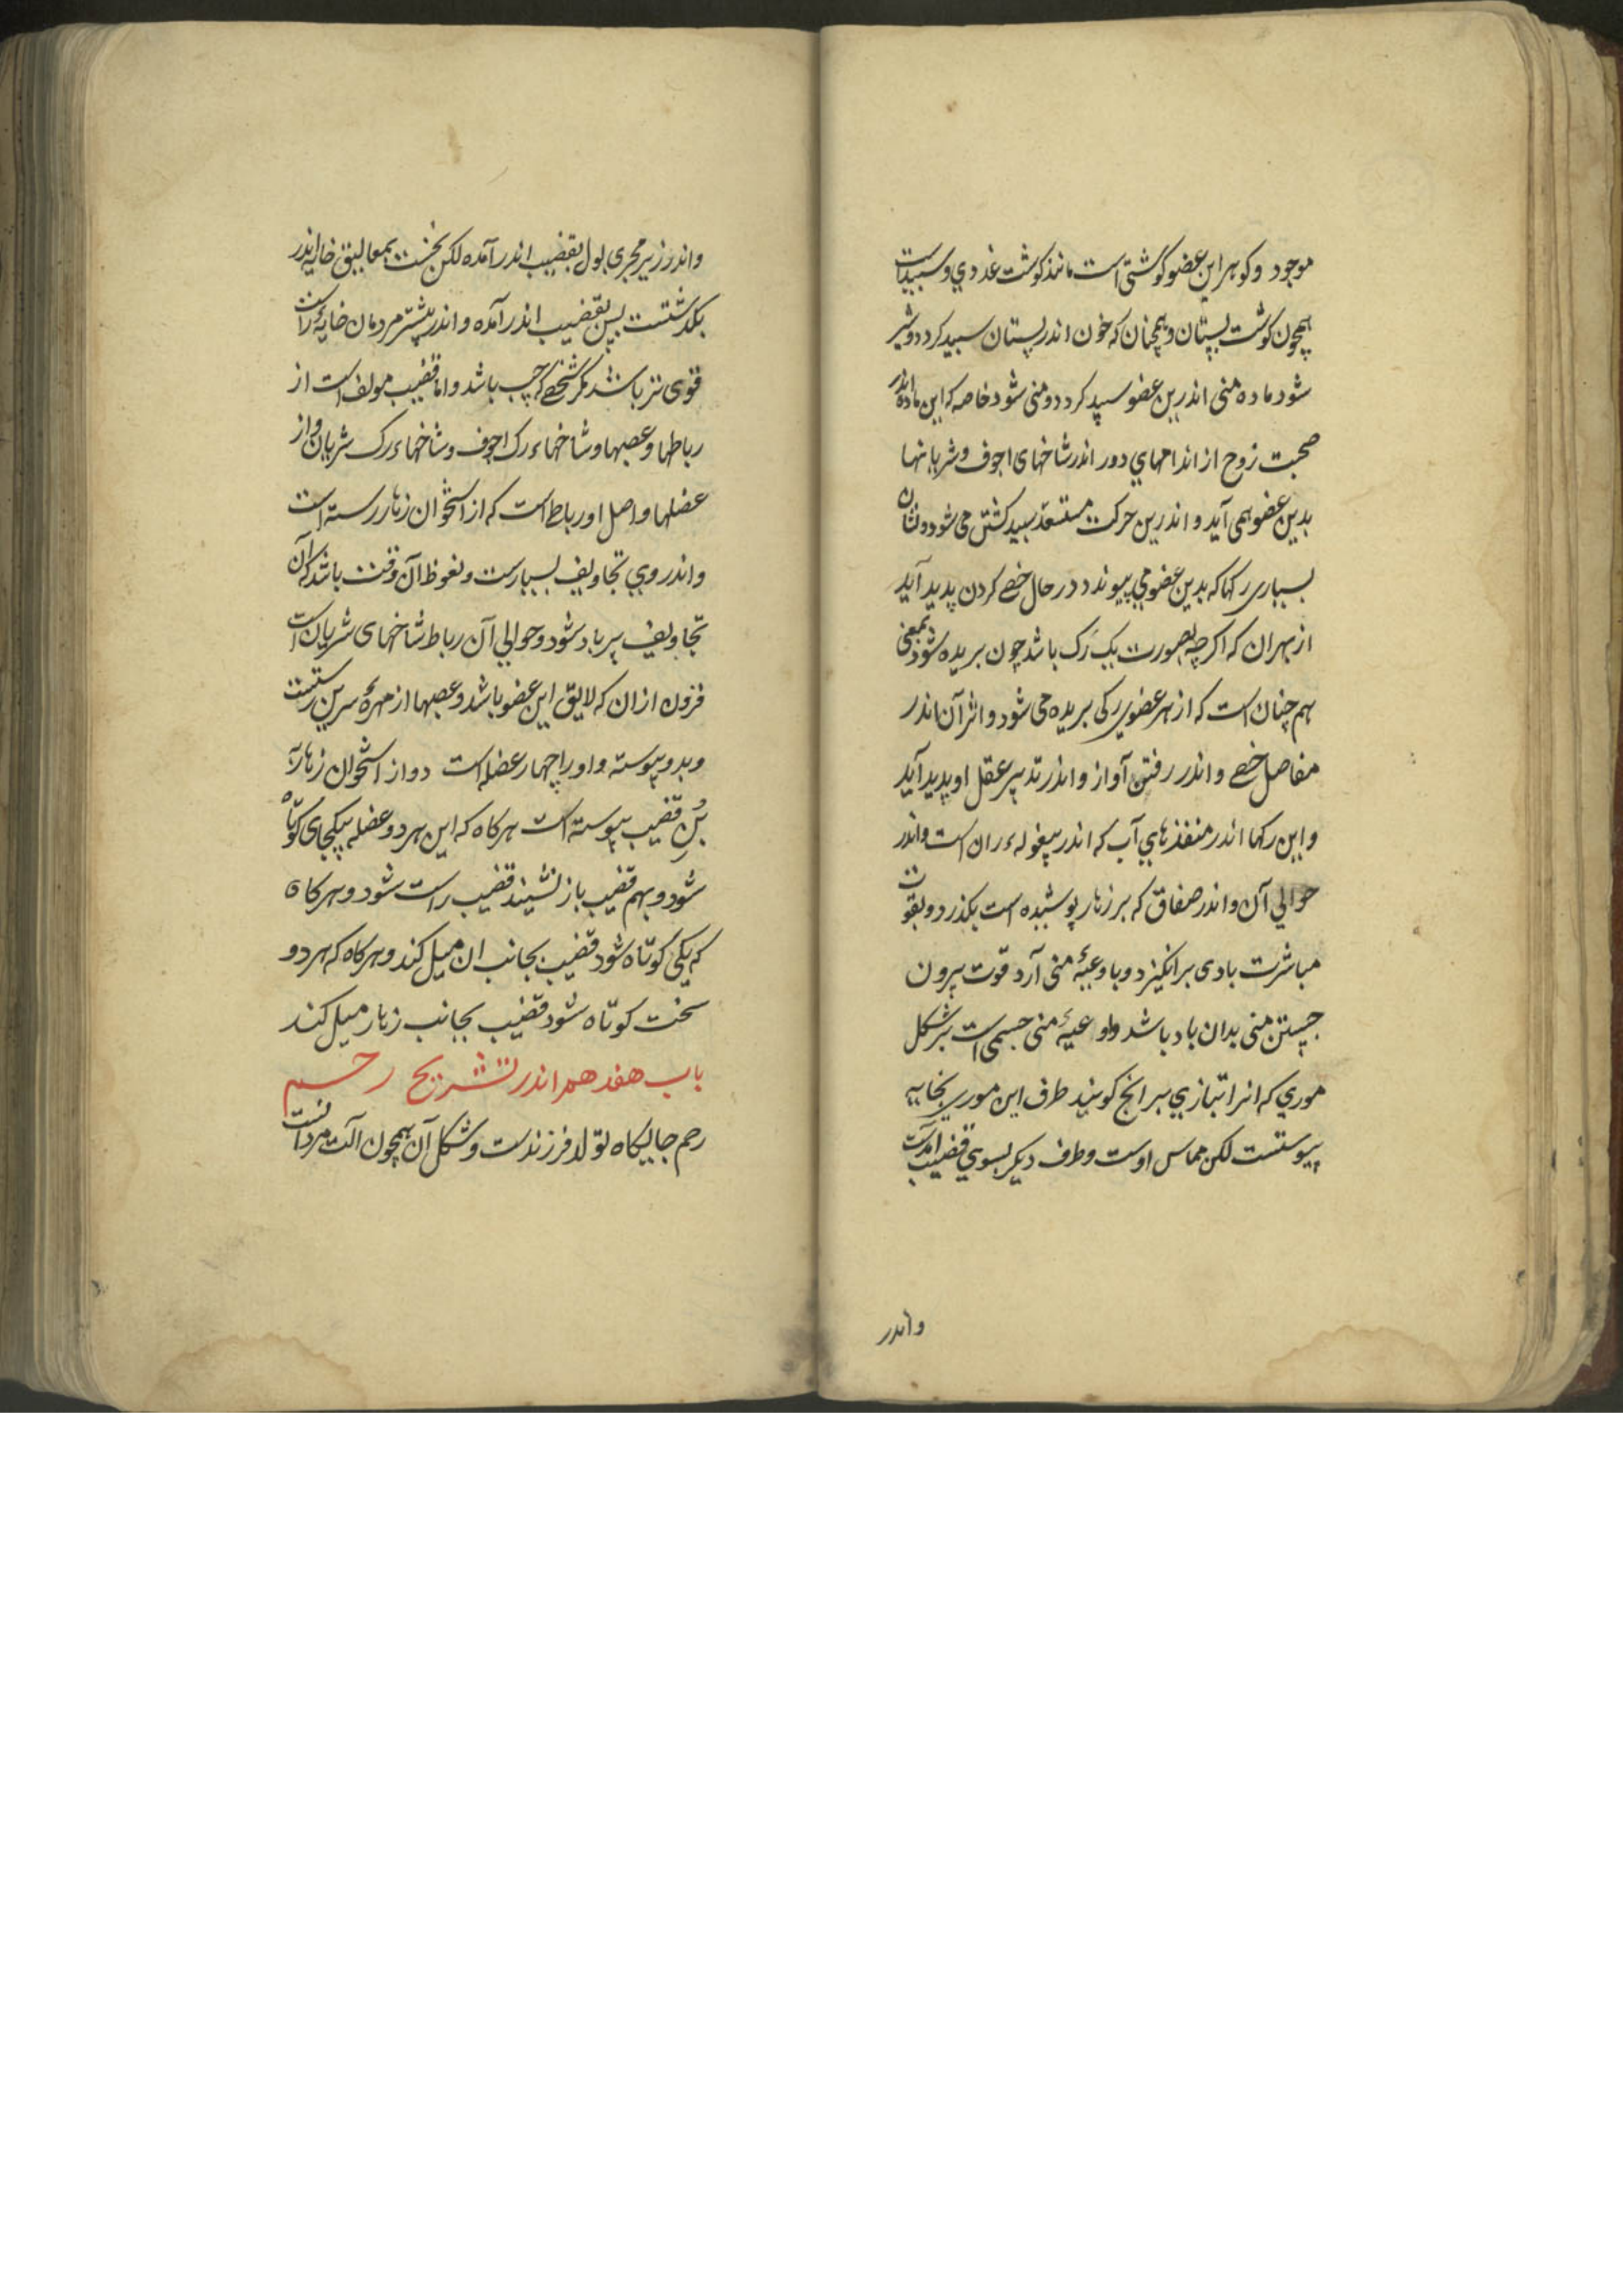 موجود و کوهر این عضو کوشتی است مانند کوشت غددی و سپیدست
همچون کوشت پستان و همچنان که خون اندر پستان سپید کردد و شیر
شود ماده منی اندرین عضو سپید کردد و منی شود خاصه که این ماده اندر
صحبت روح از اندامهای دور اندر شاخهای اجوف و شریانها
بدین عضو همی آید و اندرین حرکت مستعد سپید کشتن می شود و نشان
بسیاری رکها که بدین عضو می پیوندد در حال خصی کردن پدید آید
از بهر آن که اکر چه بصورت یک رک باشد چون بریده شود بمعنی
هم چنان است که از هر عضوی رکی بریده می شود و اثر آن اندر
مفاصل خصی و اندر رفتن آواز و اندر تدبیر عقل او پدید آید
و این رکها اندر منفذهای آب که اندر پیغوله ران است و اندر
حوالی آن و اندر صفاق که بر زهار پوشیده است بکذرد و بقوت
مباشرت بادی برانکیزد و با وعیهٔ منی آرد قوت بیرون
جستن منی بدان باد باشد و اوعیهٔ منی جسمی است بر شکل
موری که انرا بتازی برانج کویند طرف این موری بخایه
پیوستست لکن مماس اوست و طرف دیکر بسوی قضیب آمدست
واندر
واندر زیر مجری بول بقضیب اندر آمده لکن نخست بمعالیق خایه اندر
بکذشتست پس بقضیب اندر آمده و اندر بیشتر مردمان خایه راست
قوی تر باشد مکر شخصی که چپ باشد و اما قضیب مولف است از
رباطها و عصبها و شاخهاء رک اجوف و شاخهاء رک شریان و از
عضلها و اصل او رباط است که از استخوان زهار رسته است
و اندر وی تجاویف بسیارست و نعوظ آن وقت باشد که آن
تجاویف پر باد شود و حوالی آن رباط شاخهای شریان است
فزون از ان که لایق این عضو باشد و عصبها از مهرهٔ سرین رستست
و بدو پیوسته و او را چهار عضله است دو از استخوان زهار به
بُنِ قضیب پیوسته است هرکاه که این هر دو عضله بیکجای کوتاه
شود و بهم قضیب باز نشیند قضیب راست شود و هرکاه
که یکی کوتاه شود قضیب بجانب ان میل کند و هرکاه که هر دو
سخت کوتاه شود قضیب بجانب زهار میل کند
باب هفدهم اندر تشریح رحم
رحم جایکاه تولد فرزندست و شکل آن همچون آلت مردانست